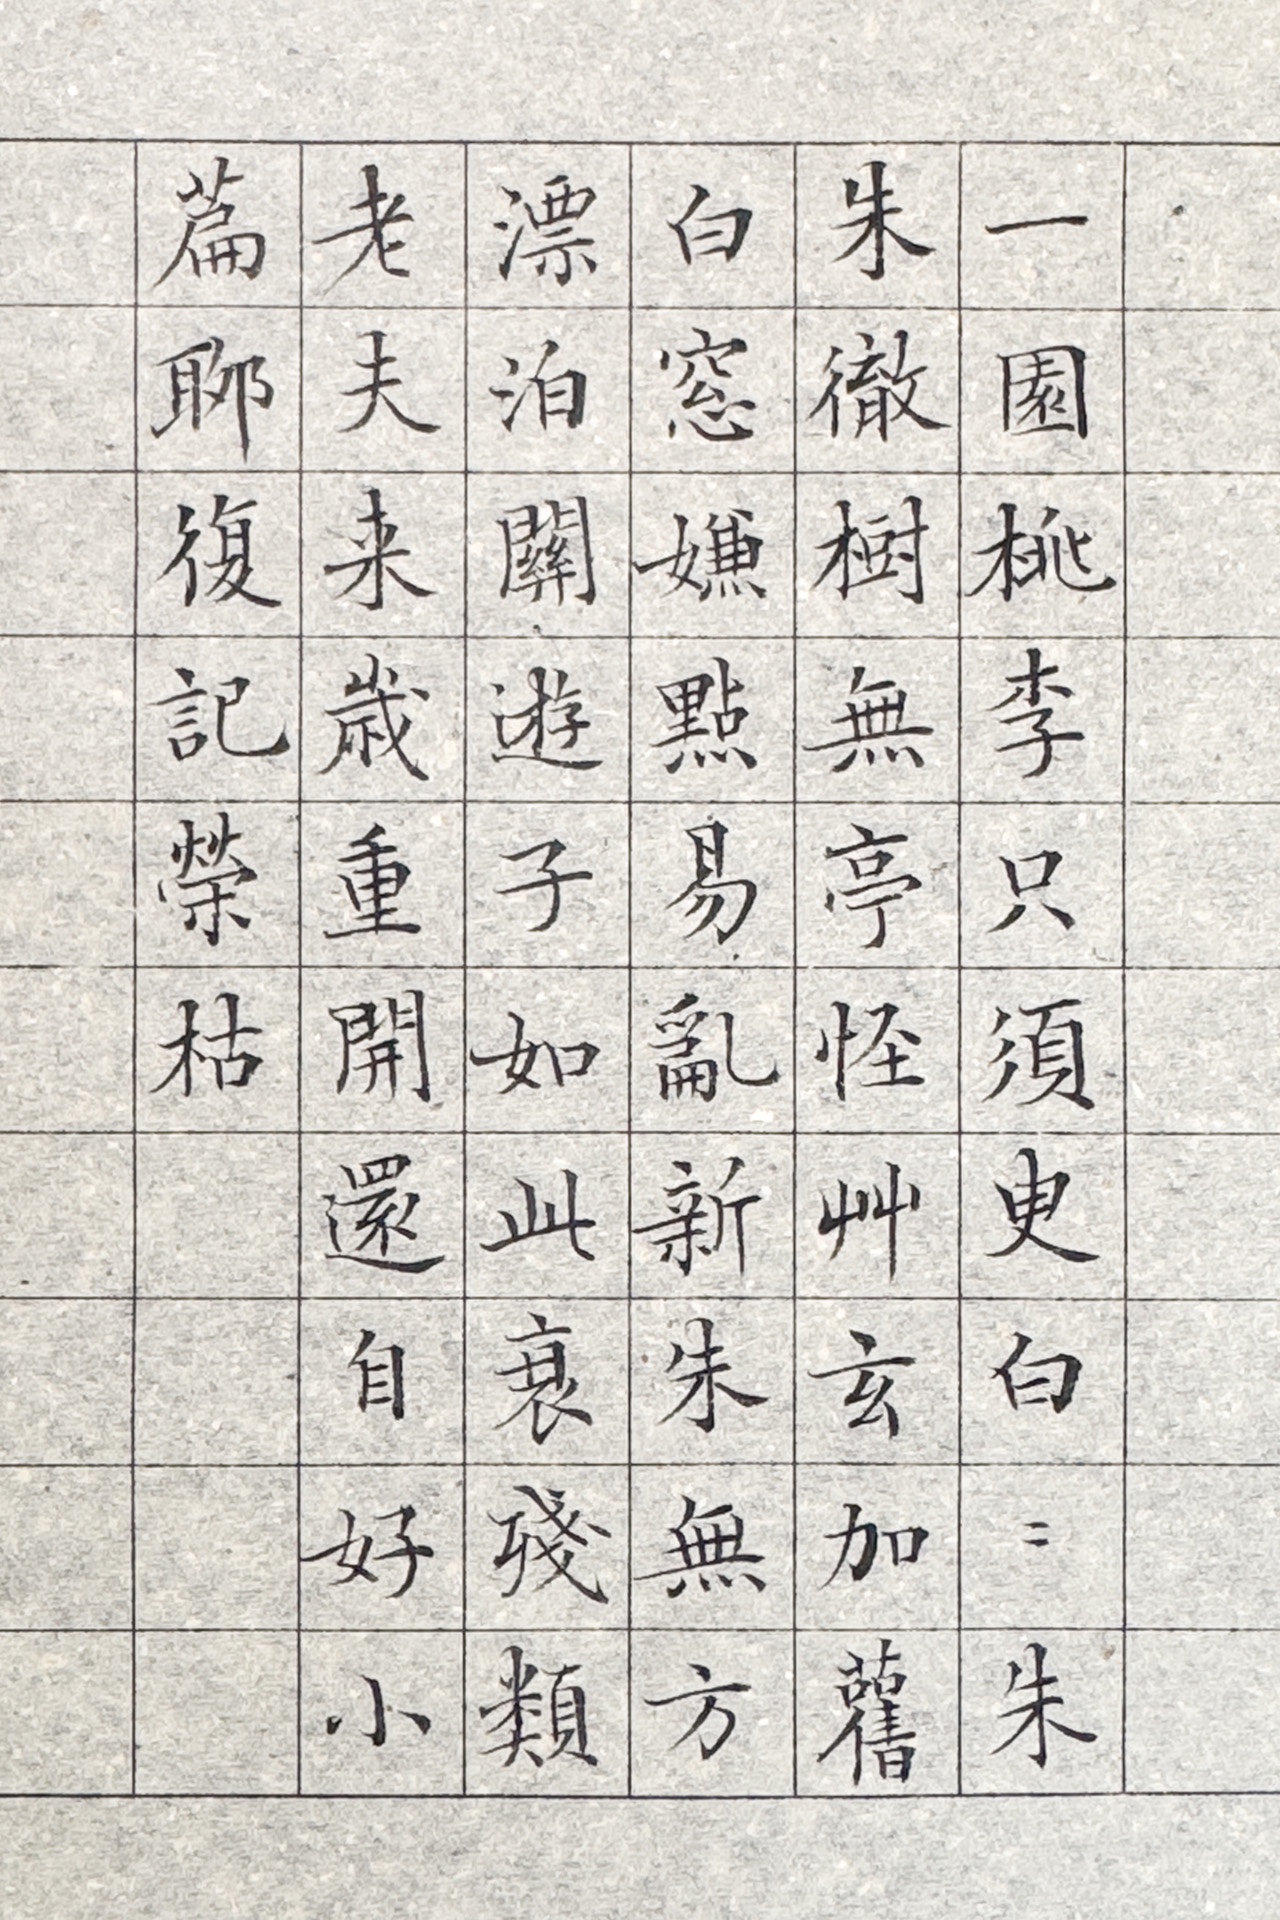 一園桃李只須臾白〻朱
朱徹樹無亭怪艸玄加舊
白窓嫌點易亂新朱無方
漂泊關遊子如此衰殘類
老夫来歳重開還自好小
篇聊復記榮枯